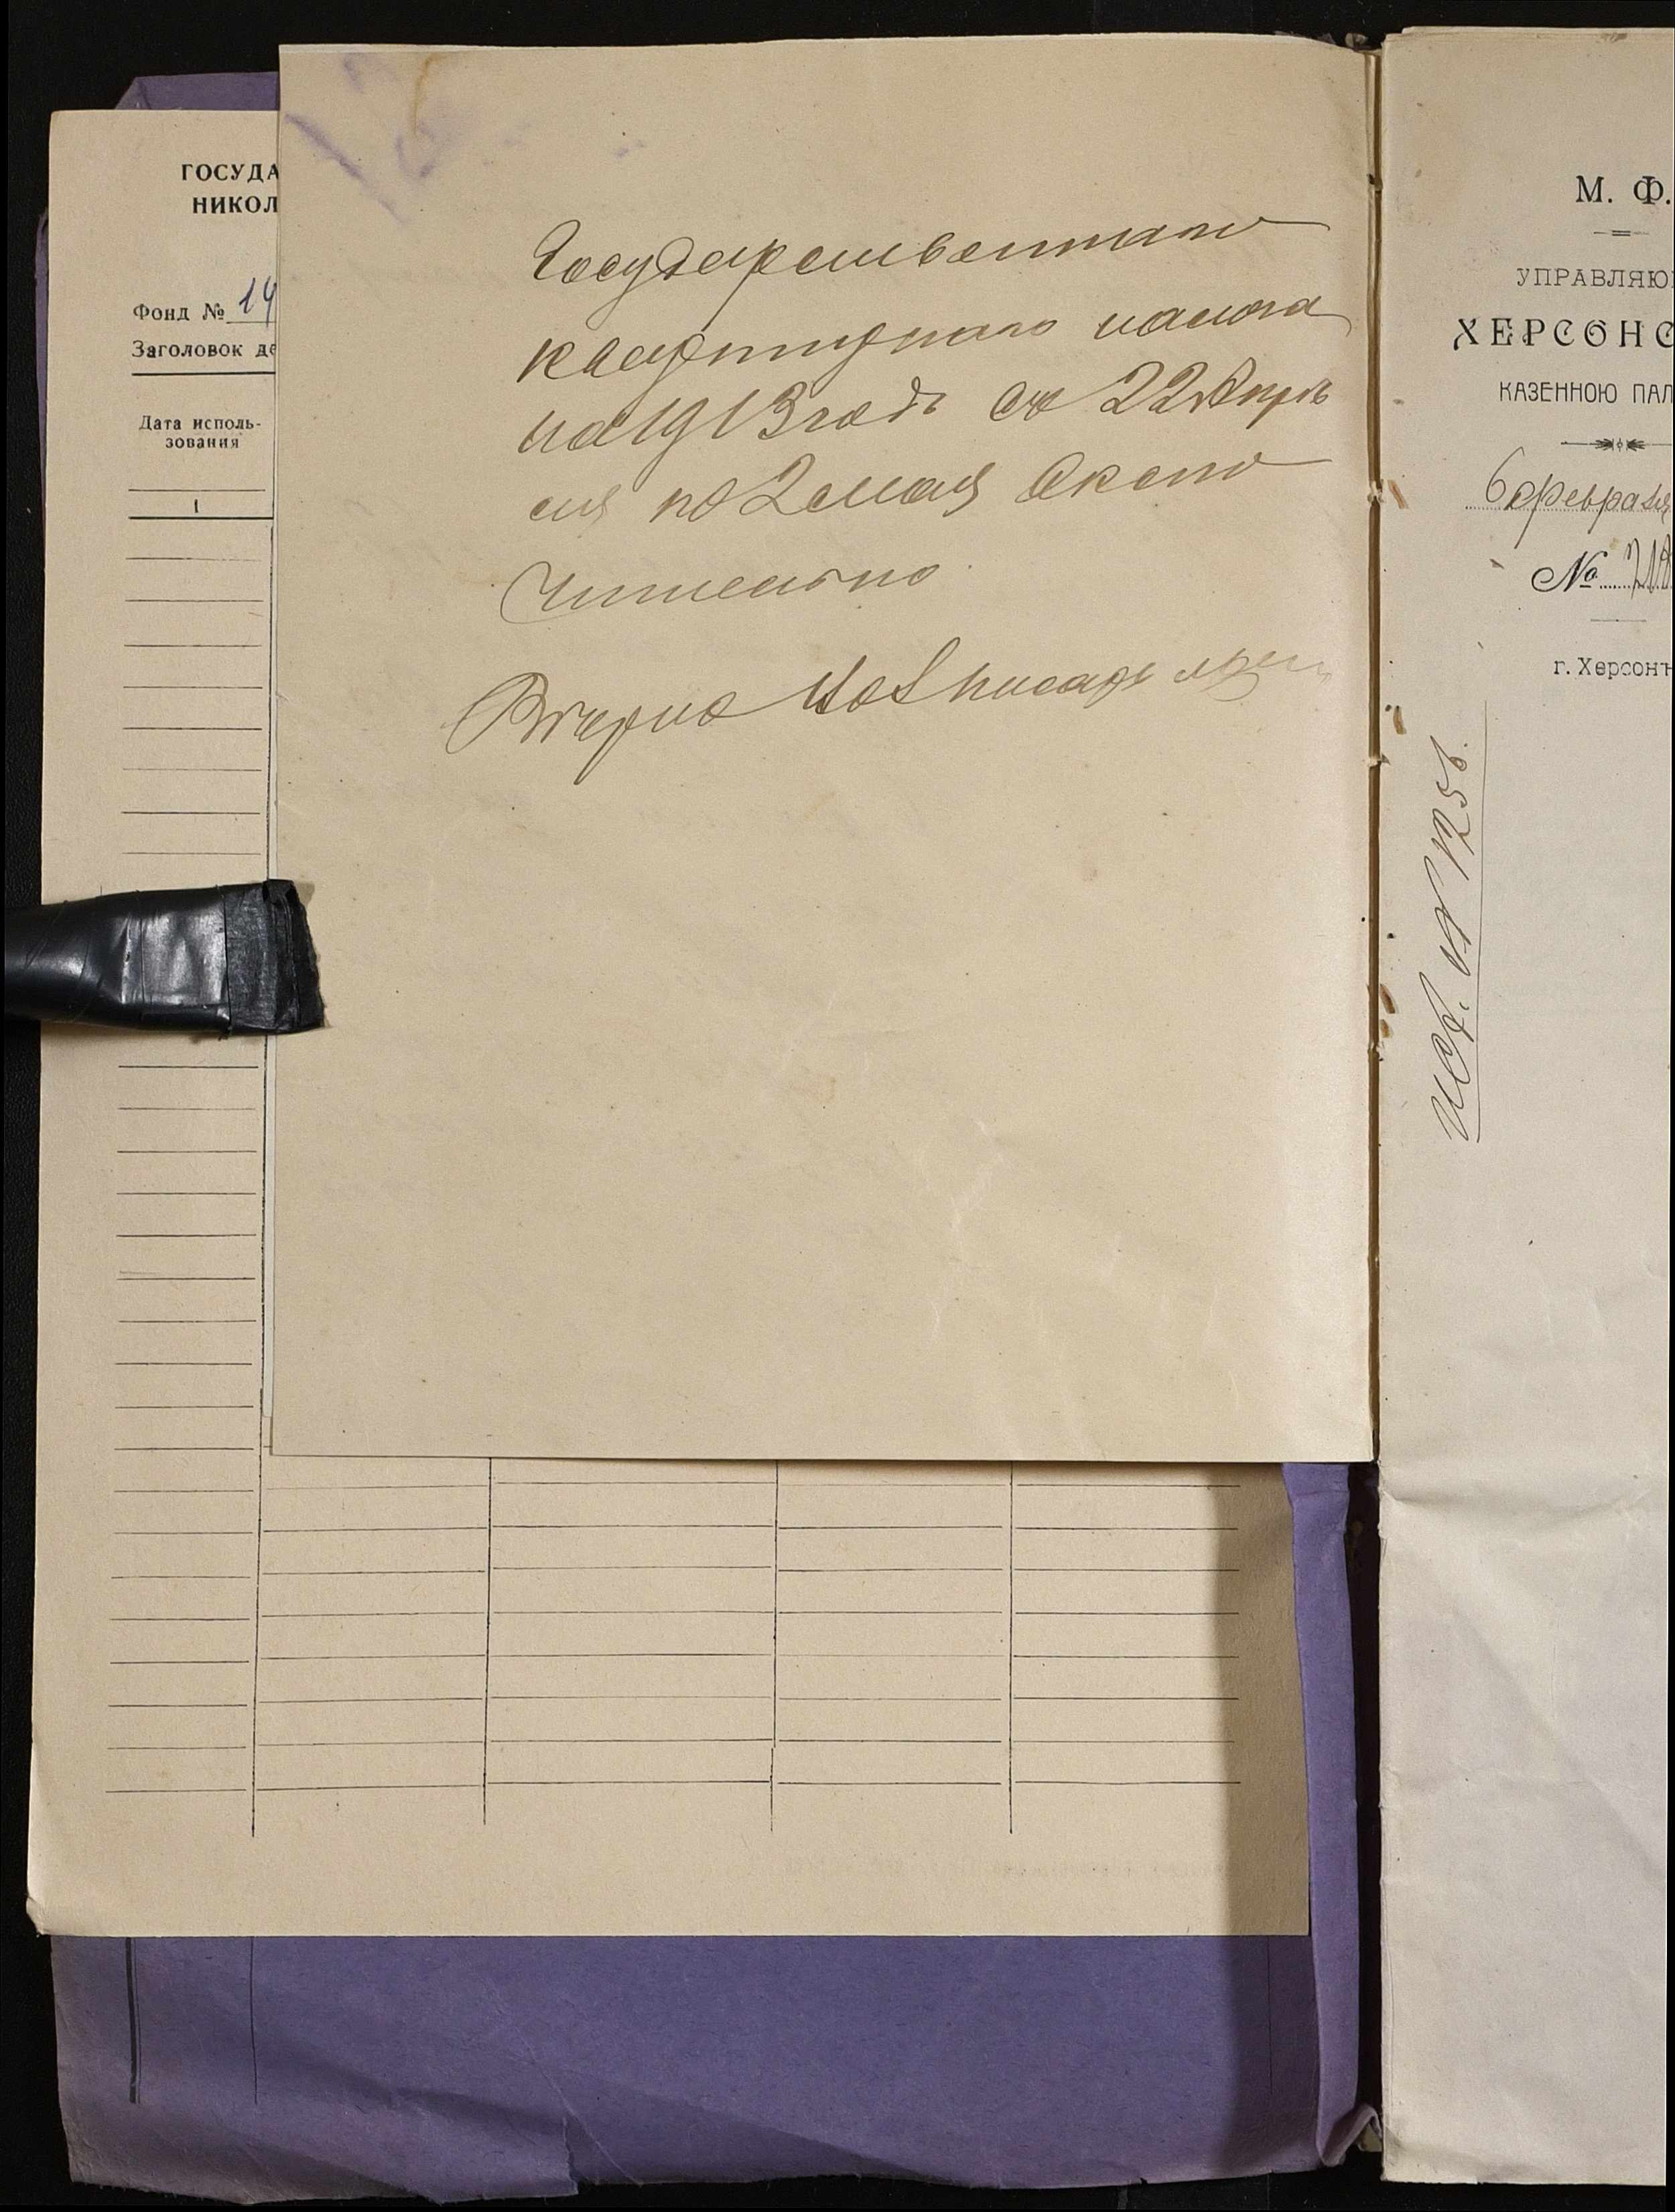 ГОСУДА
НИКОЛ
Фонд № 14
Заголовок де
Дата исполь-
зования
1
Государственнаго
квартирнаго налога
на 1913 годъ съ 22 Апрѣ
ля по 2 мая Вклю
чительно
Вѣрно писарь
М. Ф.
УПРАВЛЯЮ
ХЕРСОНС
КАЗЕННОЮ ПАЛ
6 февраля
№
г. Херсонъ